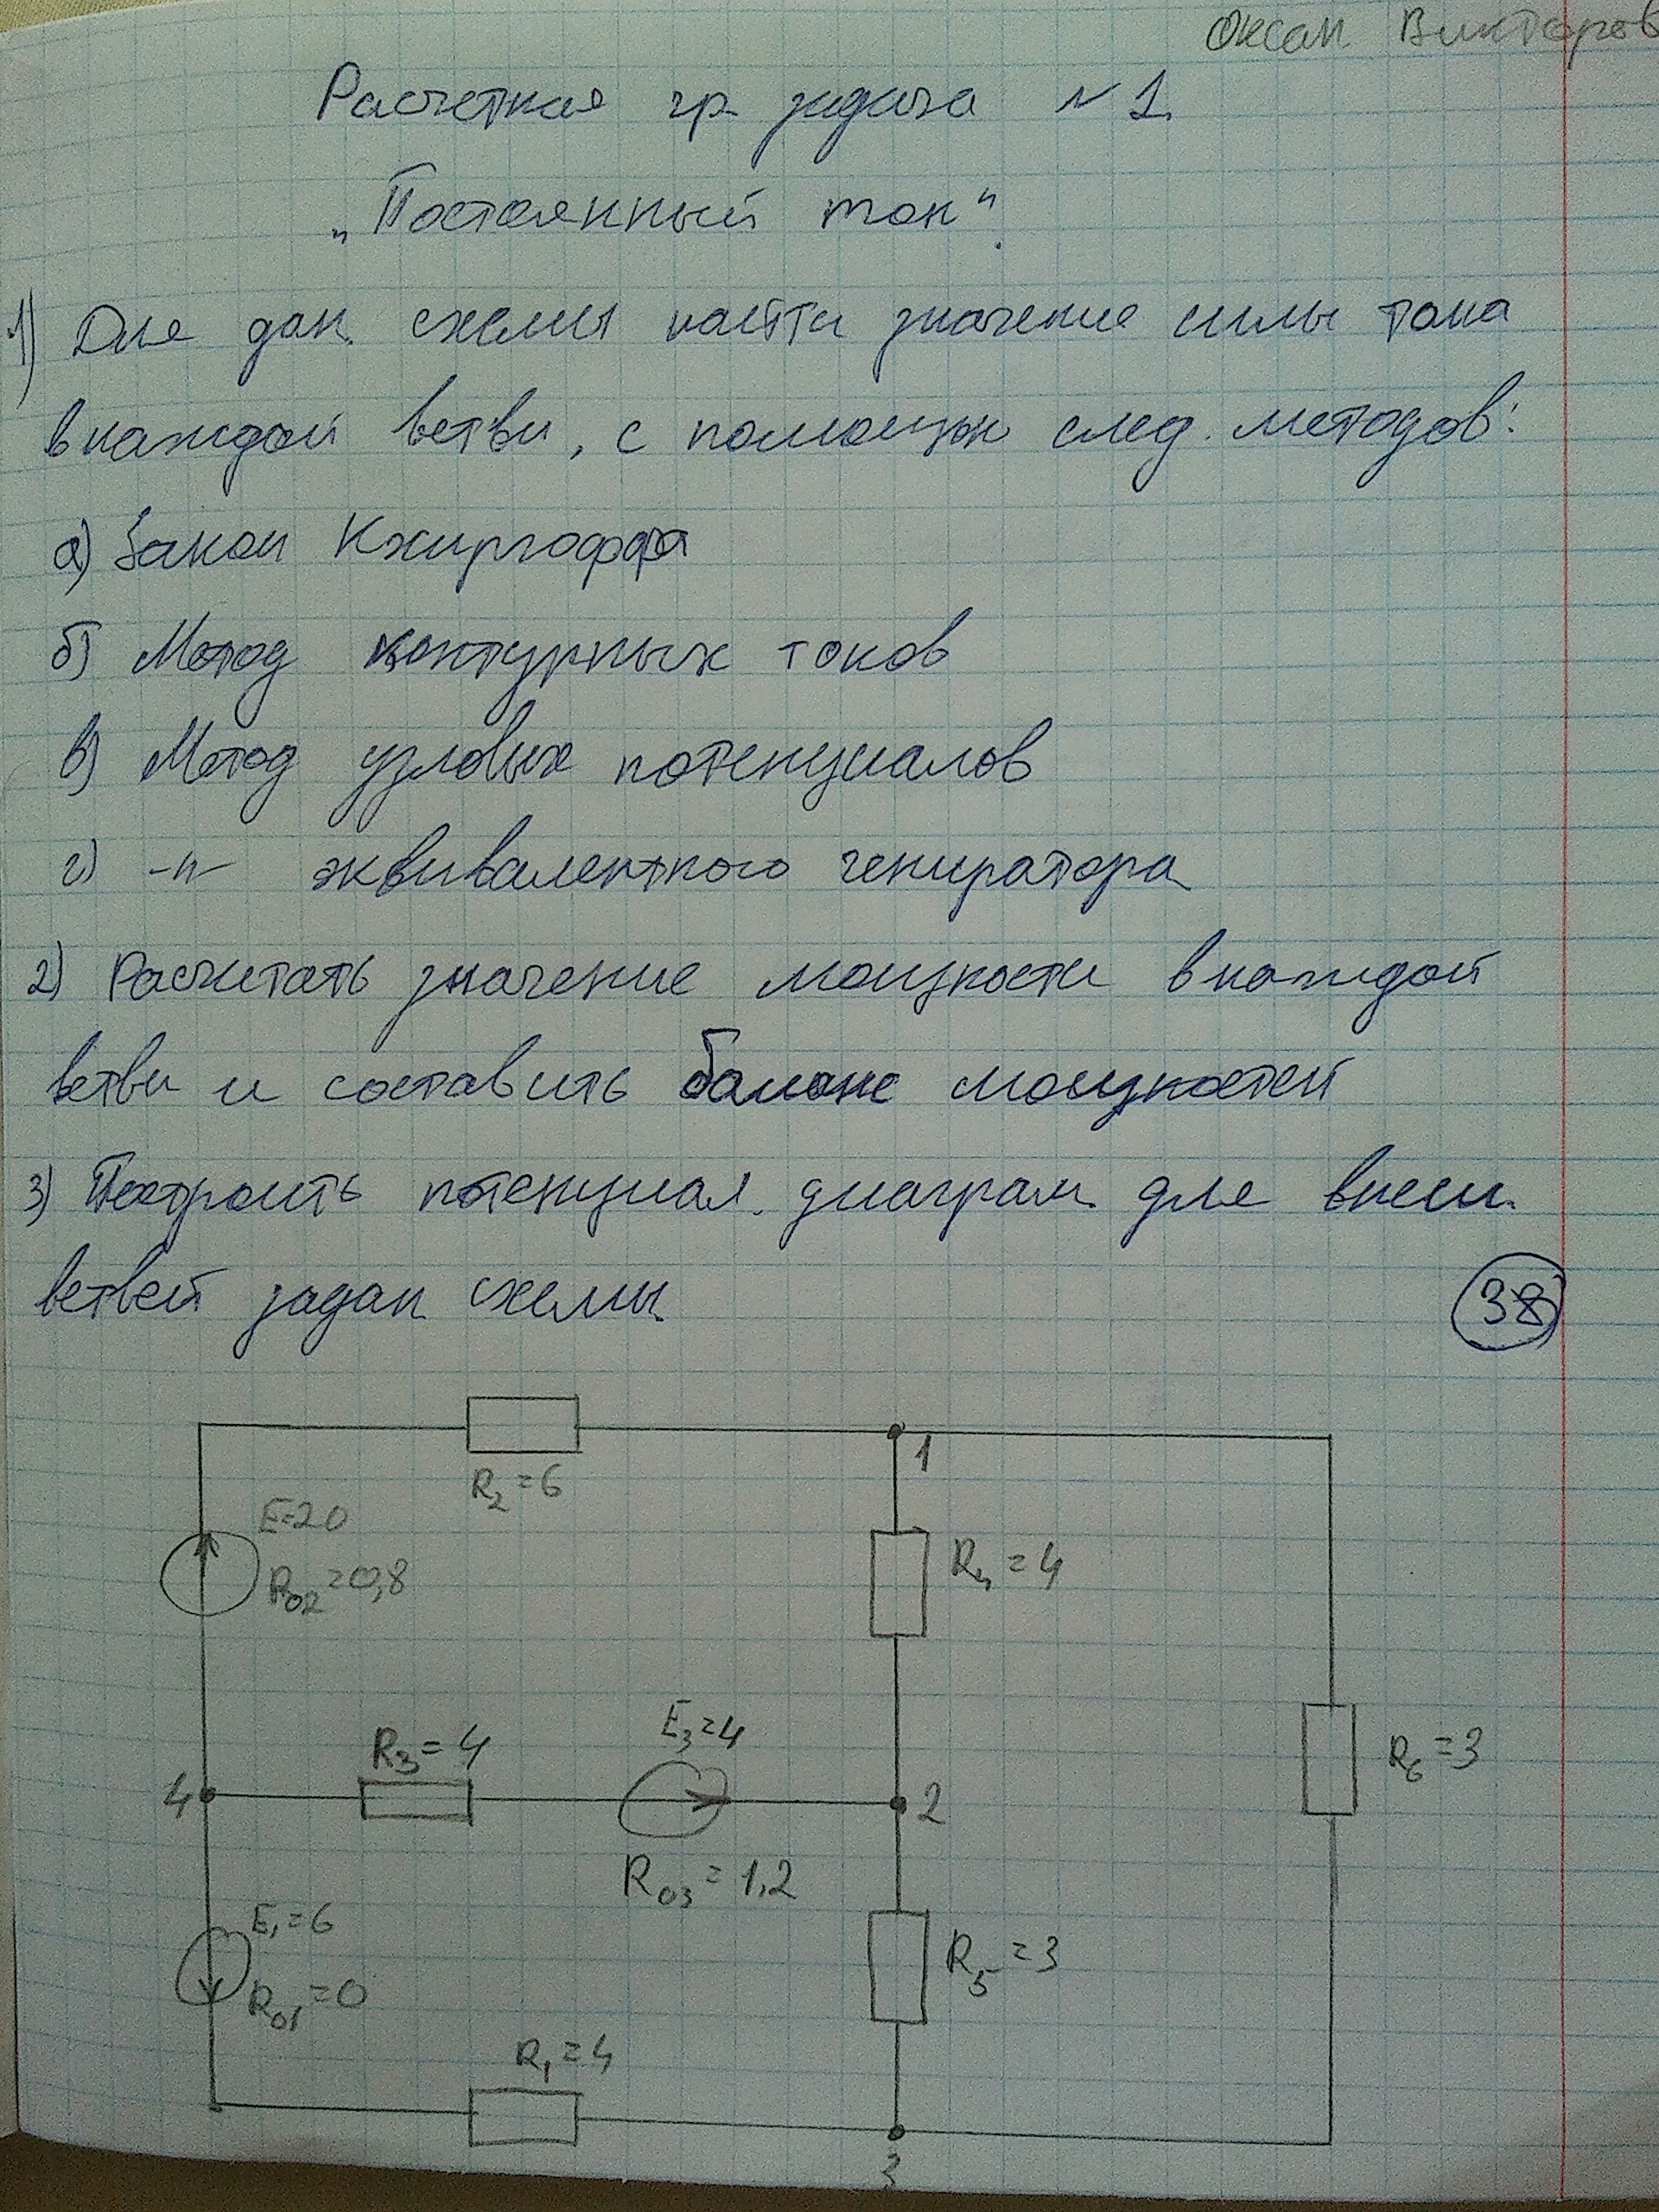 Оксан. Викторов
Расчетная гр. задача №1.
„Постоянный ток".
1) Для дан. схемы найти значение силы тока
в каждой ветви, с помощью след. методов:
а) Закон Кхиргоффа
б) Метод контурных токов
в) Метод узловых потенциалов
г) -〃- эквивалентного гениратора
2) Расчитать значение мощности в каждой
ветви и составить баланс мощностей
3) Построить потенциал. диаграм. для внеш.
ветвей задан схемы.
38
R₂=6
1
E=20
R₀₂=0,8
R₄=4
E₃=4
R₃=4
R₆=3
4
2
R₀₃=1,2
E₁=6
R₅=3
R₀₁=0
R₁=4
3